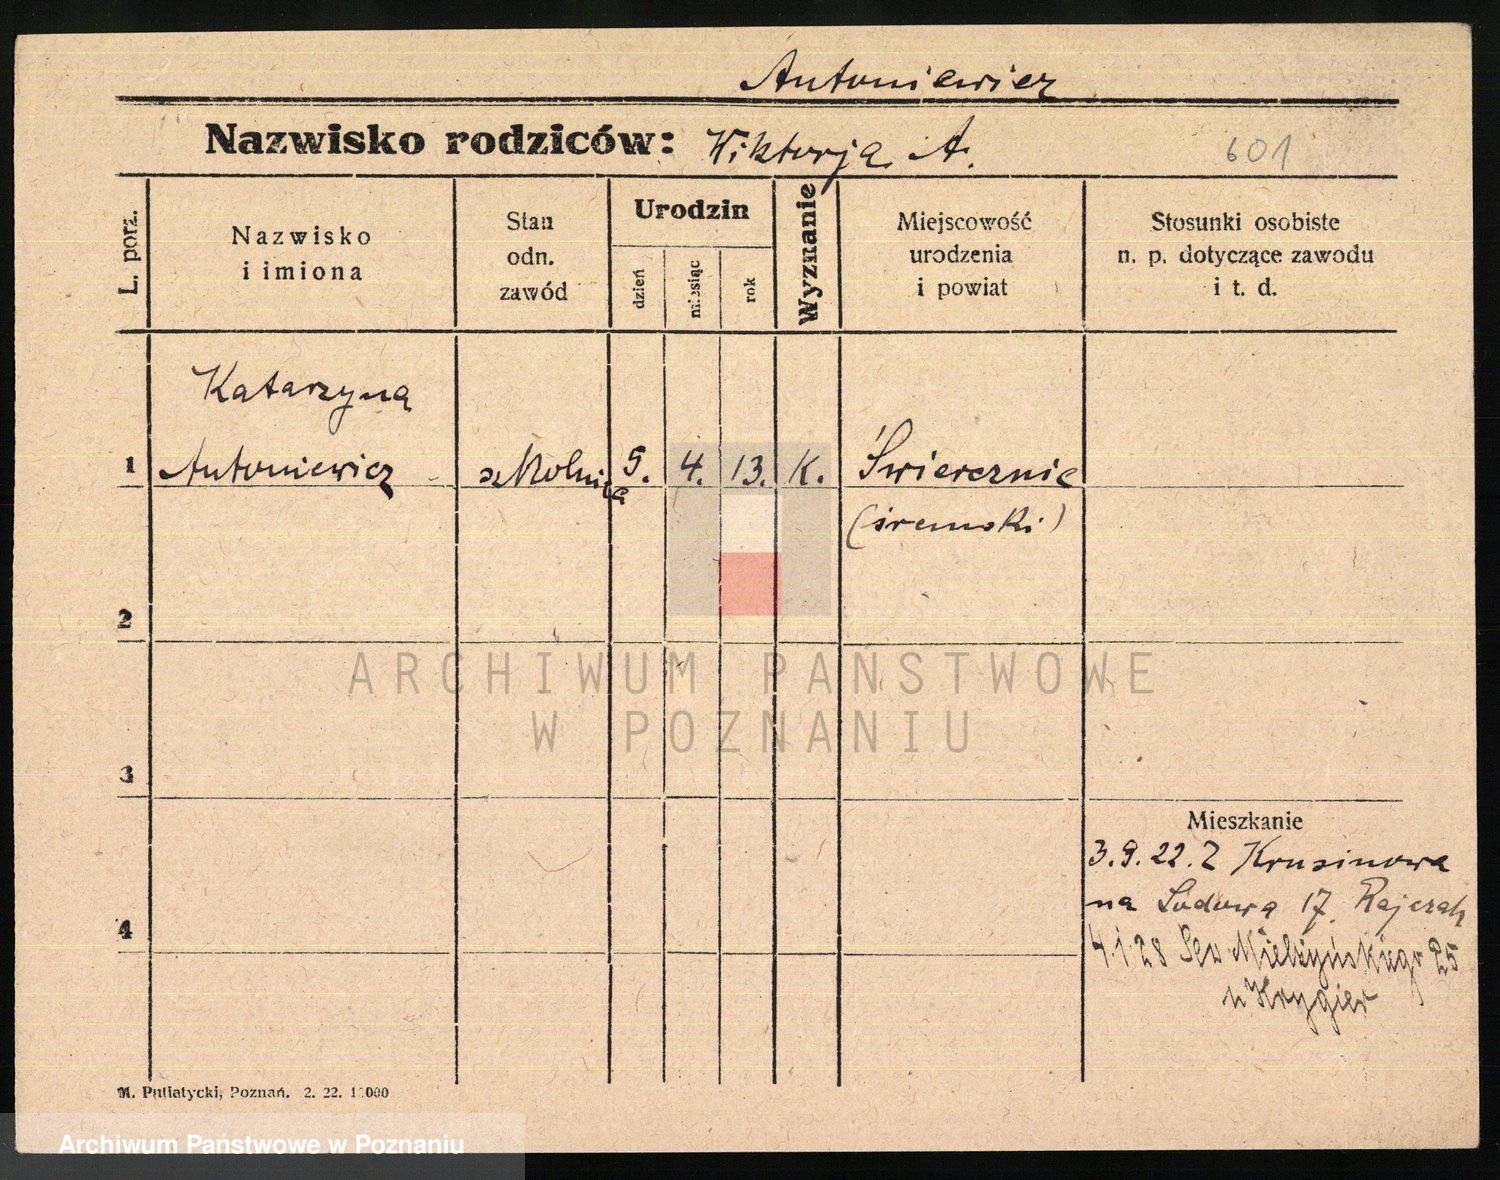 Antoniewicz
Nazwisko rodziców: Wiktorja A.
601
L. porz.
Nazwisko
i imiona
Stan
odn.
zawód
Urodzin
dzień
miesiąc
rok
Wyznanie
Miejscowość
urodzenia
i powiat
Stosunki osobiste
n. p. dotyczące zawodu
i t. d.
Katarzyna
1 Antoniewicz szkolnica 5. 4. 13. K. Świercznie
(śremski)
2
ARCHIWUM PAŃSTWOWE
W POZNANIU
3
Mieszkanie
3.9.22. Z Krusinowa
na Ludową 17. Rajczak
4
4.1.28 Sew Mielżyńskiego 25
u Krygier
M. Putiatycki, Poznań. 2. 22. 1 000
Archiwum Państwowe w Poznaniu